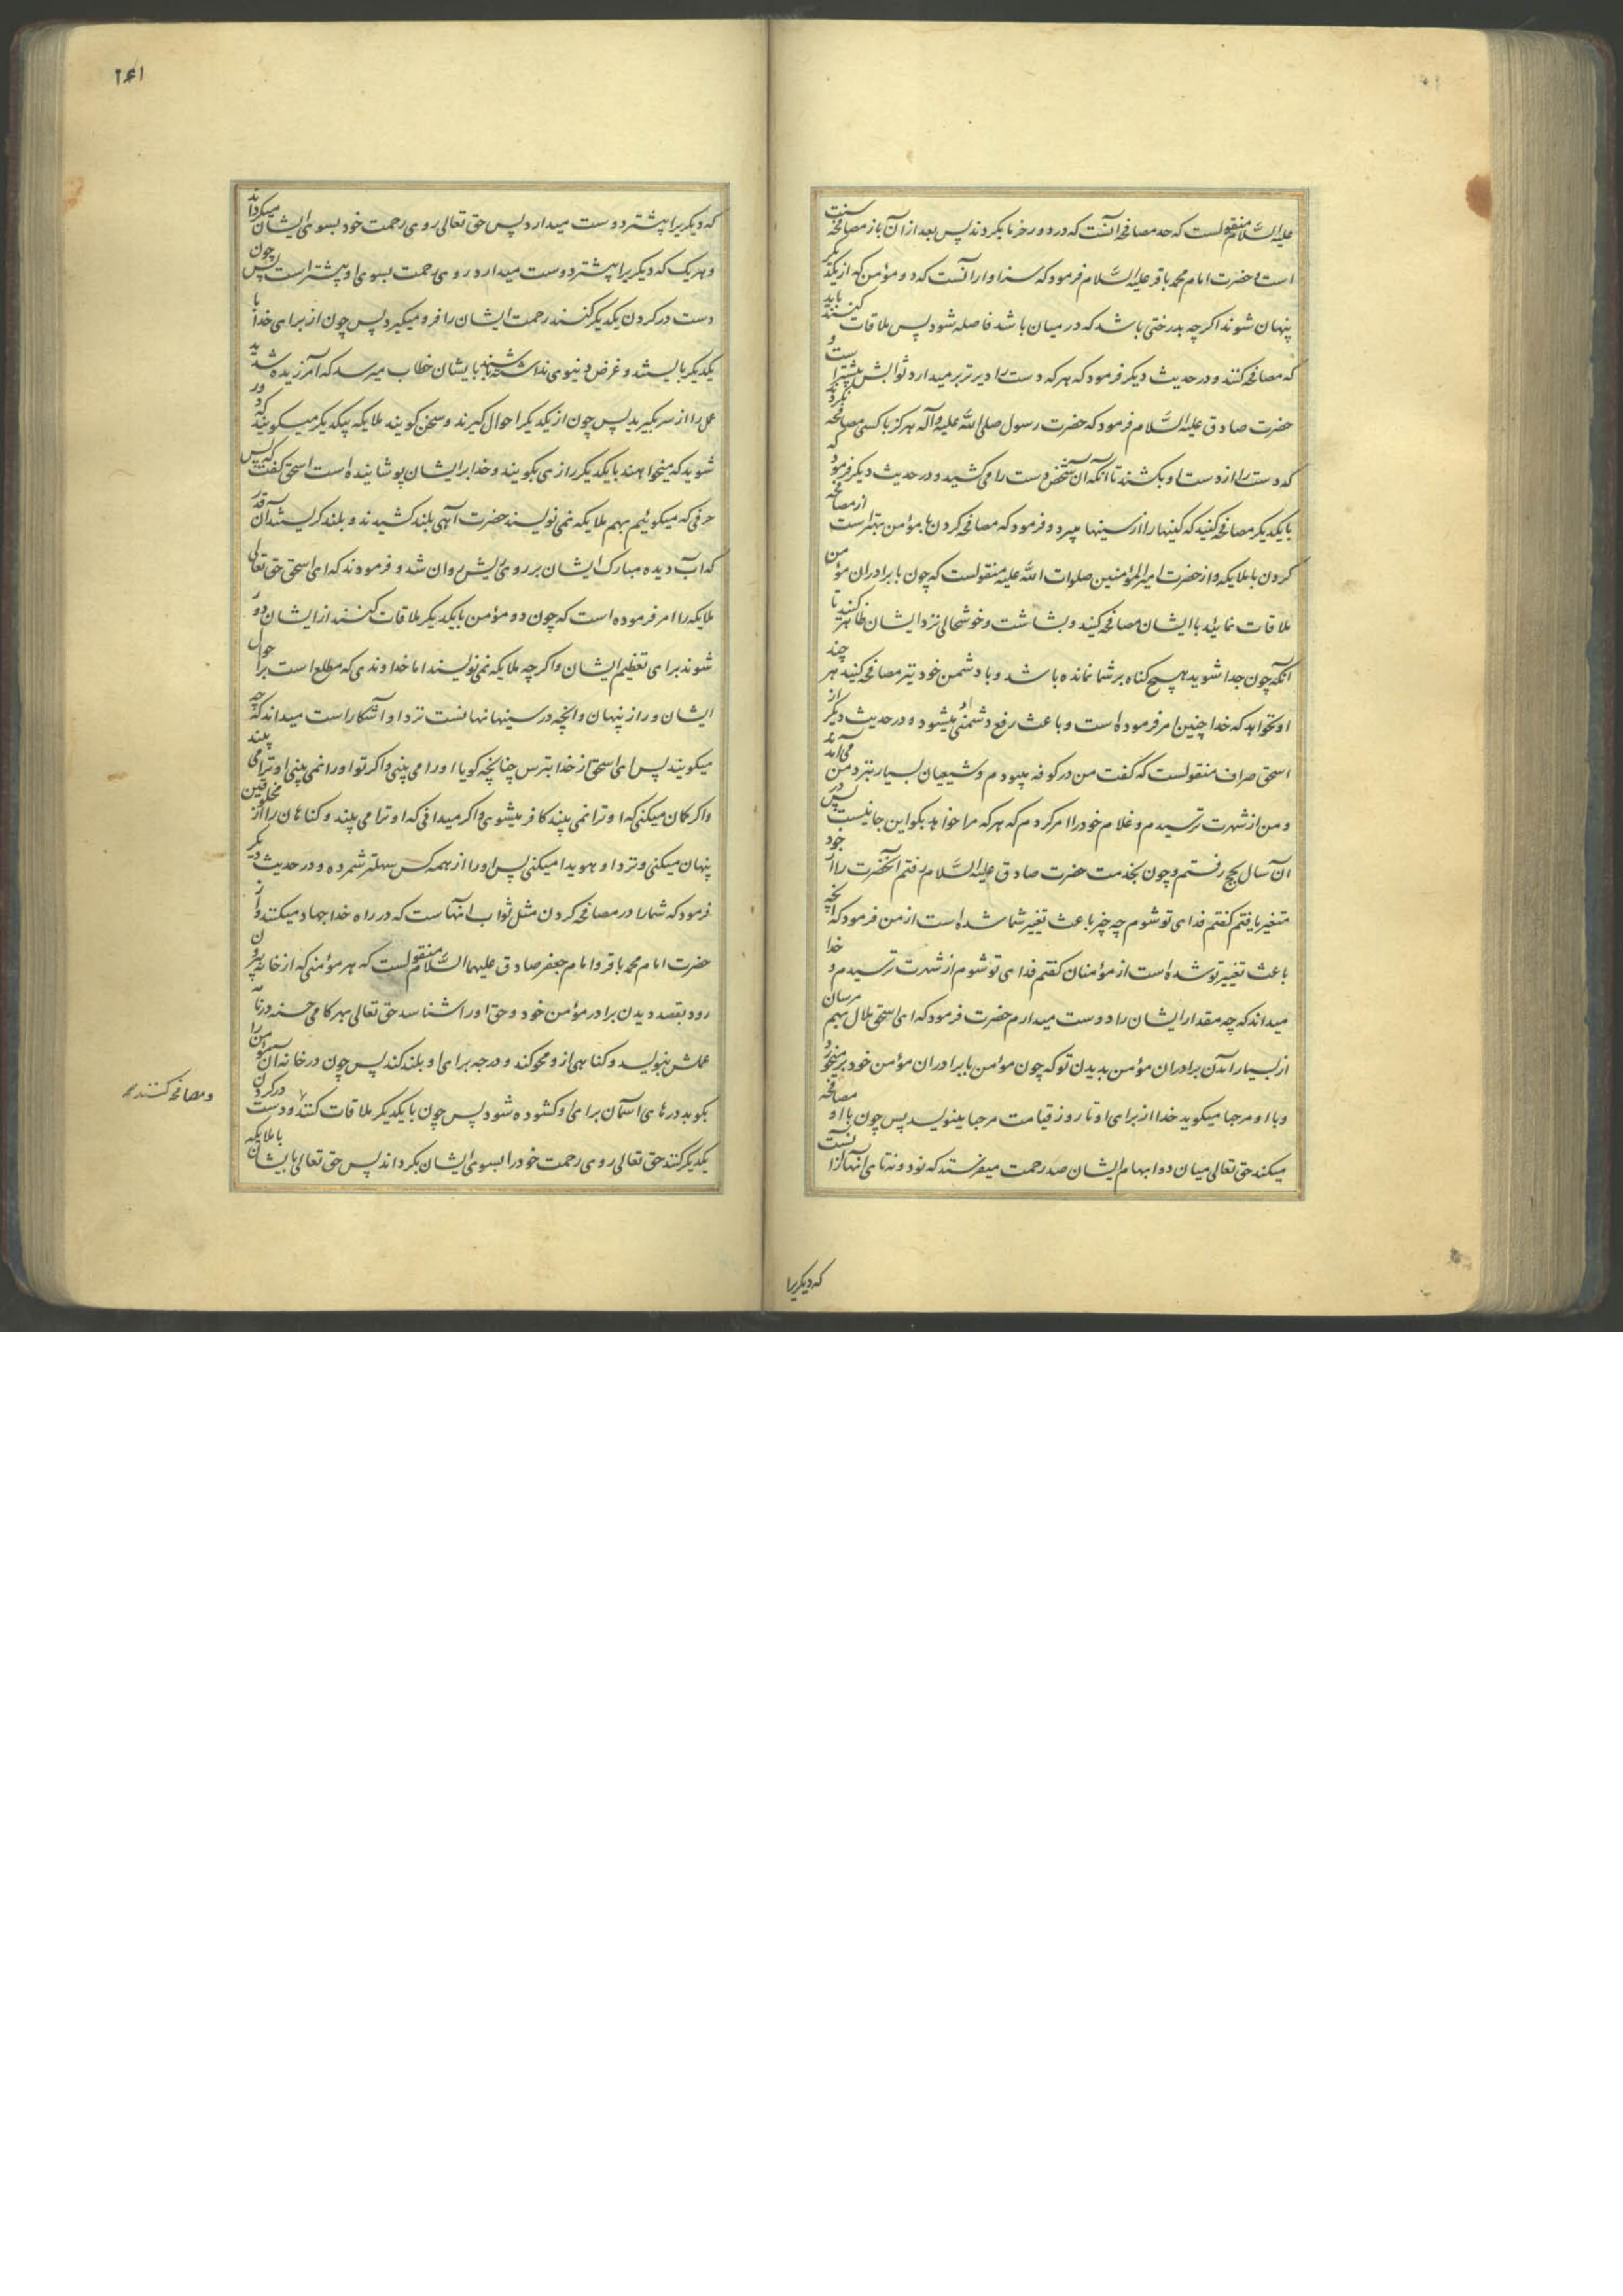 علیه السَّلام منقولست که حد مصافحه آنست که در دور خرما بگردند پس بعد از آن باز مصافحه سنت
است و حضرت امام محمد باقر علیه السَّلام فرمود که سزاوار آنست که دو مؤمن که از یکدیگر
پنهان شوند اگرچه بدرختی باشد که در میان باشد فاصله شود پس ملاقات کنند باید
که مصافحه کنند و در حدیث دیگر فرمود که هرکه دست را دیرتر بر میدارد ثوابش بیشتر است و
حضرت صادق علیه السَّلام فرمود که حضرت رسول صلی الله علیه و آله هرگز با کسی مصافحه نکردند
که دست را از دست او بکشند تا آنکه آن شخص دست را می کشید و در حدیث دیگر فرمود که
با یکدیگر مصافحه کنید که کینها را از سینها میبرد و فرمود که مصافحه کردن با مؤمن بهتر است از مصافحه
کردن با ملایکه و از حضرت امیرالمؤمنین صلوات الله علیه منقولست که چون با برادران مؤمن
ملاقات نمائید با ایشان مصافحه کنید و بشاشت و خوشحالی نزد ایشان ظاهر کنید تا
آنکه چون جدا شوید هیچ گناه بر شما نمانده باشد و با دشمن خود نیز مصافحه کنید هر چند
او نخواهد که خدا چنین امر فرموده است و باعث رفع دشمنی او میشود و در حدیث دیگر از
اسحق صراف منقولست که گفت من در کوفه میبودم و شیعیان بسیار بنزد من می آمدند
و من از شهرت ترسیدم و غلام خود را امر کردم که هرکه مرا خواهد بگو این جا نیست پس در
آن سال بحج رفتم و چون بخدمت حضرت صادق علیه السَّلام رفتم آنحضرت را از خود
متغیر یافتم گفتم فدای تو شوم چه چیز باعث تغیر شما شده است از من فرمود که آنچه
باعث تغییر تو شده است از مؤمنان گفتم فدای تو شوم از شهرت ترسیدم و خدا
میداند که چه مقدار ایشان را دوست میدارم حضرت فرمود که ای اسحق ملال بهم مرسان
از بسیار آمدن برادران مؤمن بدیدن تو که چون مؤمن با برادران مؤمن خود بر میخورد
و با او مرحبا میگوید خدا از برای او تا روز قیامت مرحبا مینویسد پس چون با او مصافحه
میکند حق تعالی میان دو ابهام ایشان صد رحمت میفرستد که نود و نه تای آنها از آنست
که دیگریرا
۲۶۱
که دیگریرا بیشتر دوست میدارد پس حق تعالی روی رحمت خود بسوی ایشان میگرداند
و هر یک که دیگریرا بیشتر دوست میدارد روی رحمت بسوی او بیشتر است پس چون
دست در گردن یکدیگر کنند رحمت ایشان را فرو میگیرد پس چون از برای خدا با
یکدیگر بایستند و غرض دنیوی نداشته باشند بایشان خطاب میرسد که آمرزیده شدید
عمل را از سر بگیرید پس چون از یکدیگر احوال گیرند و سخن گویند ملایکه بیکدیگر میگویند که دور
شوید که میخواهند با یکدیگر رازی بگویند و خدا بر ایشان پوشانیده است اسحق گفت که پس
حرفی که میگوئیم بهم ملایکه نمی نویسند حضرت آهی بلند کشیدند و بلند گریستند آن قدر
که آب دیده مبارک ایشان بر روی ریش روان شد و فرمودند که ای اسحق حق تعالی
ملایکه را امر فرموده است که چون دو مؤمن با یکدیگر ملاقات کنند از ایشان دور
شوند برای تعظیم ایشان و اگرچه ملایکه نمی نویسند اما خداوندی که مطلع است بر احوال
ایشان و راز پنهان و آنچه در سینها نهانست نزد او آشکار است میداند که چه
میگویند پس ای اسحق از خدا بترس چنانچه گویا او را می بینی و اگر تو او را نمی بینی او ترا می بیند
و اگر گمان میکنی که او ترا نمی بیند کافر میشوی و اگر میدانی که او ترا می بیند و گناهان را از مخلوقین
پنهان میکنی و نزد او هویدا میکنی پس او را از همه کس سهلتر شمرده و در حدیث دیگر
فرمود که شما را در مصافحه کردن مثل ثواب آنهاست که در راه خدا جهاد میکنند و از
حضرت امام محمد باقر و امام جعفر صادق علیهما السَّلام منقولست که هر مؤمنی که از خانه بیرون
رود بقصد دیدن برادر مؤمن خود و حق او را شناسد حق تعالی بهر گامی حسنه در نامه
عملش بنویسد و گناهی از و محو کند و درجه برای او بلند کند پس چون در خانه آن مؤمن را
بکوبد درهای آسمان برای او گشوده شود پس چون با یکدیگر ملاقات کنند و دست در گردن
و مصافحه کنند
یکدیگر کنند حق تعالی روی رحمت خود را بسوی ایشان بگرداند پس حق تعالی بایشان با ملایکه